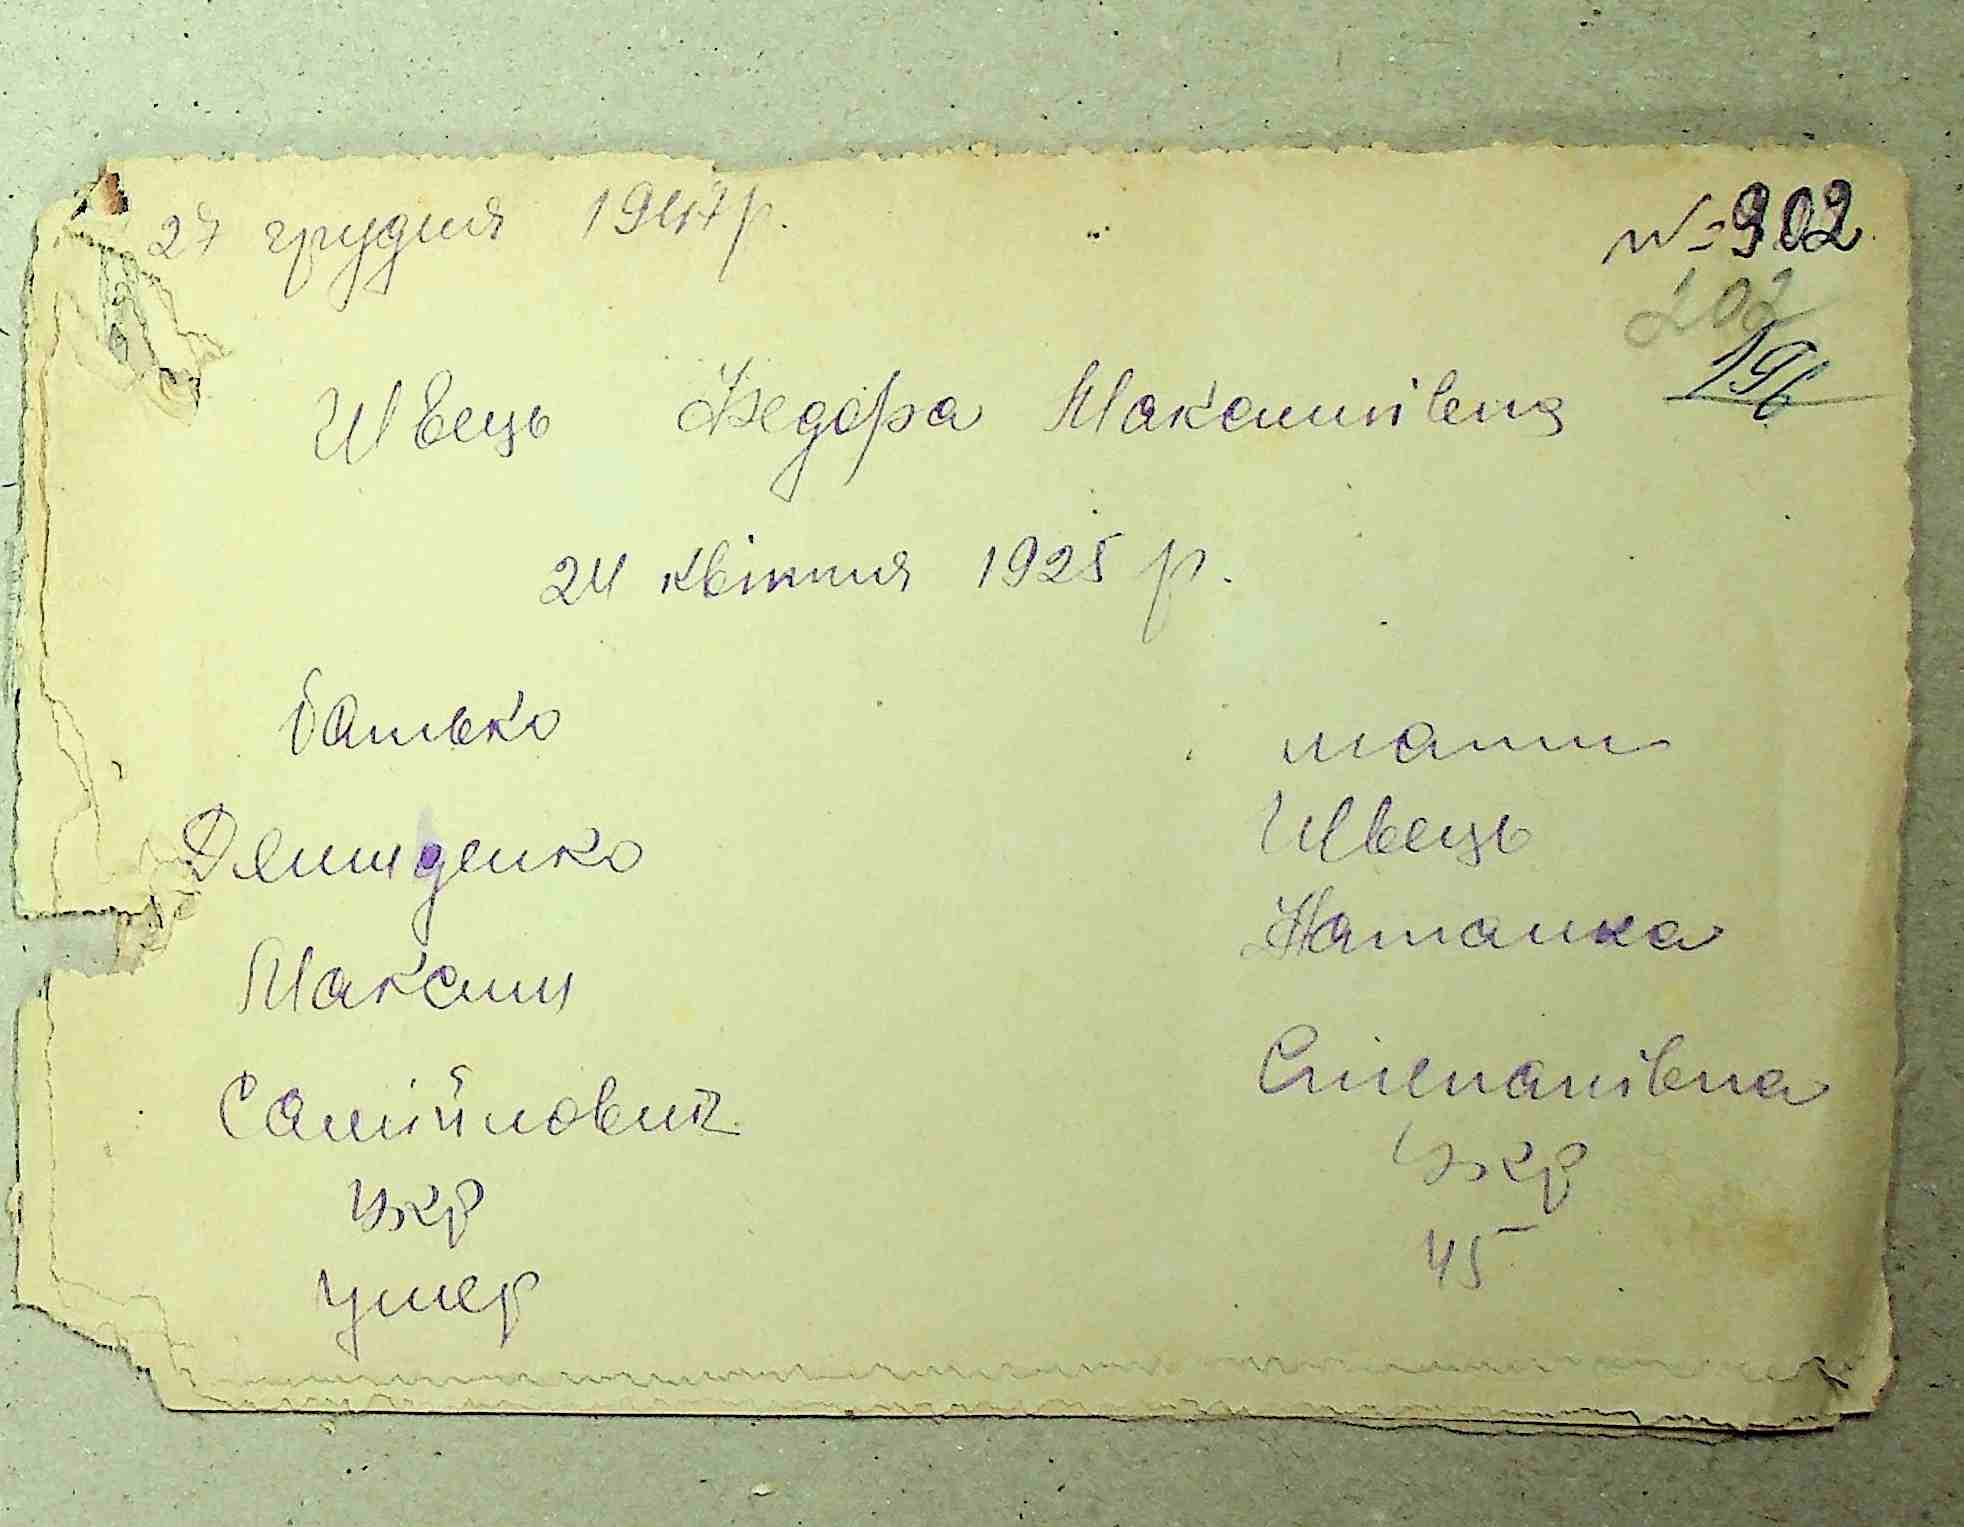 27 грудня 1947 р.
№ 902
202
196
Швець Федора Максимівна
24 квітня 1925 р.
батько
мати
Швець
Максим
Наталка
Самійлович
Степанівна
Укр
Укр
умер
45